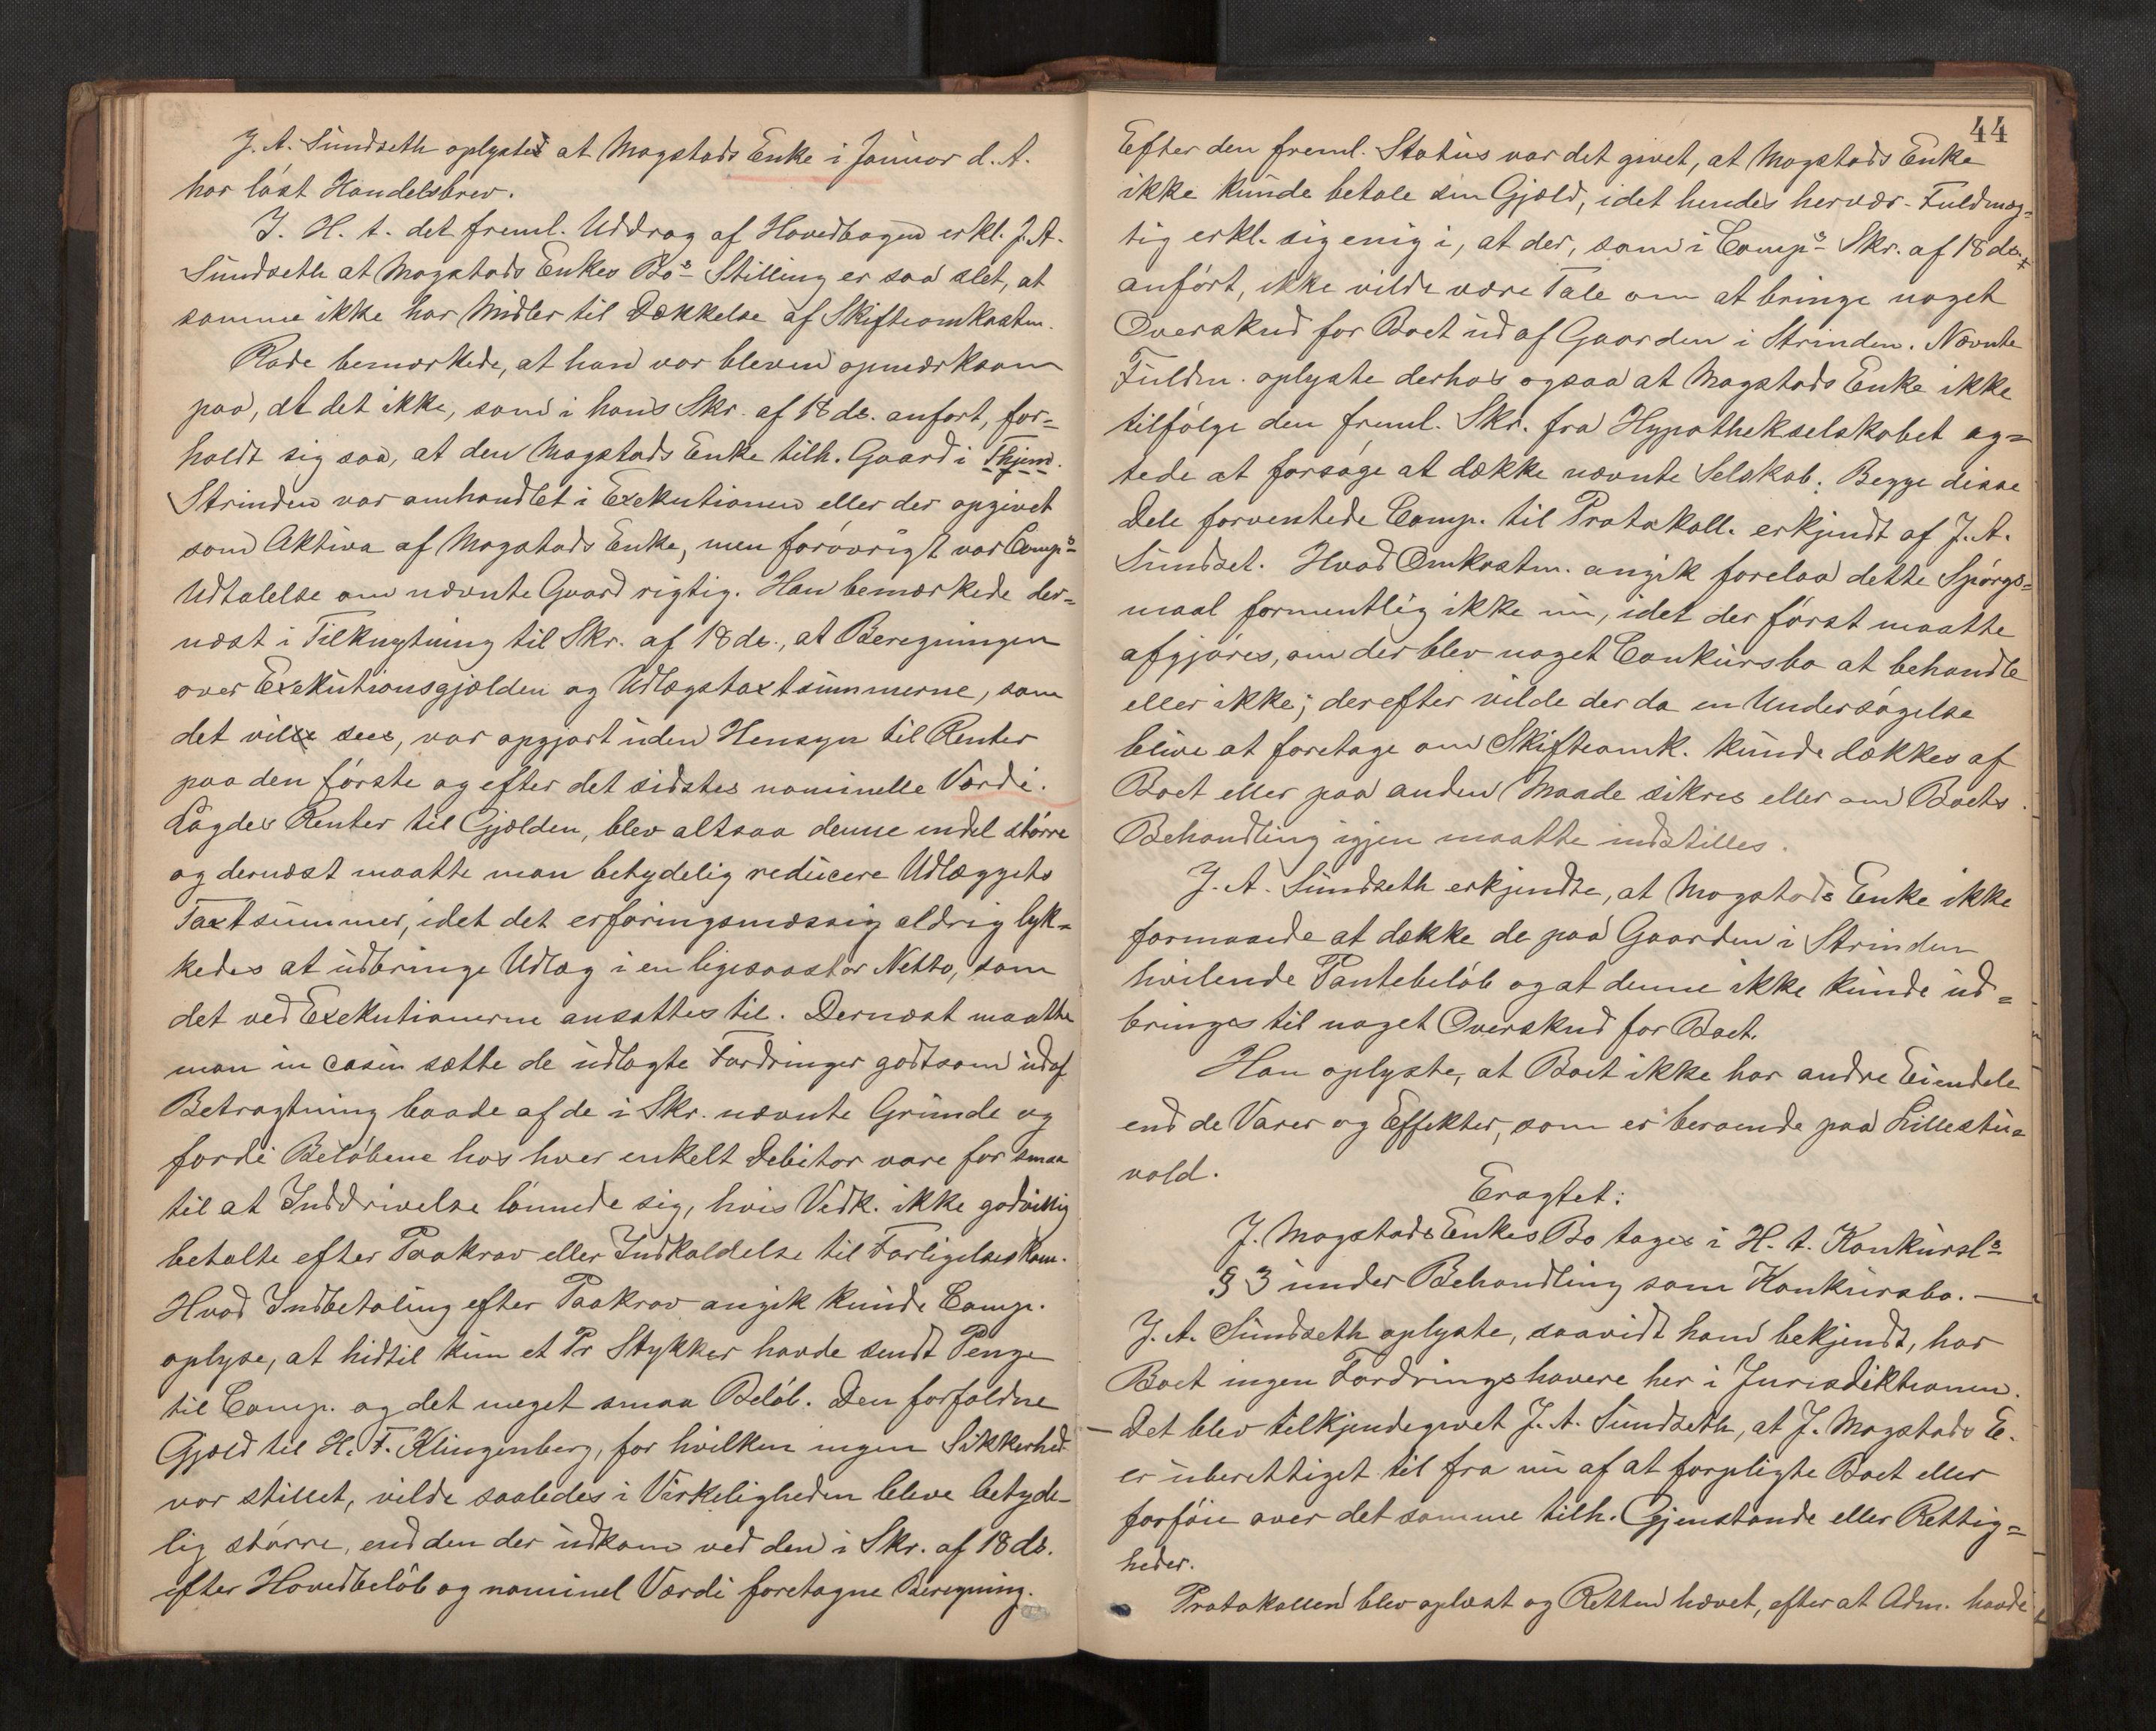 J. A. Sundseth oplyste at Mogstads Enke i Januar d. A.
har löst Handelsbrev.
I. H. t. det freml. Uddrag af Hovedbogen erkl. J. A.
Sundseth at Mogstads Enkes Bo's Stilling er saa slet, at
samme ikke har Midler til Dækkelse af Skifteomkostn.
Rode bemærkede, at han var bleven opmærksom
paa, at det ikke, som i hans Skr. af 18 ds. anfört, for=
holdt sig saa, at den Mogstads Enke tilh. Gaard i
Strinden var omhandlet i Exekutionen eller der opgivet
som Aktiva af Mogstads Enke, men forövrigt var Comp's
Udtalelse om nævnte Gaard rigtig. Han bemærkede der=
næst i Tilknytning til Skr. af 18 ds., at Beregningen
over Exekutionsgjælden og Udlægstaxtsummerne, som
det vil sees, var opgjort uden Hensyn til Renter
paa den förste og efter det sidstes nominelle Værdi.
Lagdes Renter til Gjælden, blev altsaa denne endel större
og dernæst maatte man betydelig reducere Udlæggets
Taxtsummer, idet det erfaringsmæssig aldrig lyk=
kedes at udbringe Udlæg i en ligesaastor Netto, som
det ved Exekutionerne ansattes til. Dernæst maatte
man in casu sætte de udlagte Fordringer godtsom udaf
Betragtning baade af de i Skr. nævnte Grunde og
fordi Belöbene hos hver enkelt Debitor vare for smaa
til at Inddrivelse lönnede sig, hvis Vedk. ikke godvillig
betalte efter Paakrav eller Indkaldelse til Forligelseskom.
Hvad Indbetaling efter Paakrav angik kunde Comp.
oplyse, at hidtil kun et Pr Stykker havde sendt Penge
til Comp. og det meget smaa Belöb. Den forfaldne
Gjæld til H. F. Klingenberg, for hvilken ingen Sikkerhed
var stillet, vilde saaledes i Virkeligheden bleve betyde-
lig större, end den der udkom ved den i Skr. af 18 ds.
efter Hovedbelöb og nominel Værdi foretagne Beregning.
44
Efter den freml. Status var det givet, at Mogstads Enke
ikke kunde betale sin Gjæld, idet hendes hervær. Fuldmæg=
tig erkl. sig enig i, at der, som i Comp's Skr. af 18 ds.
anfört, ikke vilde være Tale om at bringe noget
Overskud for Boet ud af Gaarden i Strinden. Nævnte
Fuldm. oplyste derhos ogsaa at Mogstads Enke ikke
tilfölge den freml. Skr. fra Hypothekselskabet ag=
tede at forsöge at dække nævnte Selskab. Begge disse
Dele forventede Comp. til Protokoll. erkjendt af J. A.
Sundset. Hvad Omkostn. angik forelaa dette Spörgs=
maal formentlig ikke nu, idet der först maatte
afgjöres, om der blev noget Conkursbo at behandle
eller ikke; derefter vilde der da en Undersögelse
blive at foretage om Skifteomk. kunde dækkes af
Boet eller paa anden Maade sikres eller om Boets
Behandling igjen maatte indstilles.
J. A. Sundseth erkjendte, at Mogstads Enke ikke
formaaede at dække de paa Gaarden i Strinden
hvilende Pantebelöb og at denne ikke kunde ud=
bringes til noget Overskud for Boet.
Han oplyste, at Boet ikke har andre Eiendele
end de Varer og Effekter, som er beroende paa Lillestu=
vold.
Eragtet:
J. Mogstads Enkes Bo tages i H. t. Konkursl's
§ 3 under Behandling som Konkursbo. —
J. A. Sundseth oplyste, saavidt ham bekjendt, har
Boet ingen Fordringshavere her i Jurisdiktionen.
— Det blev tilkjendegivet J. A. Sundseth, at J. Mogstads E.
er uberettiget til fra nu af at forpligte Boet eller
forföie over det samme tilh. Gjenstande eller Rettig=
heder.
Protokollen blev oplæst og Retten hævet, efter at Adm. havde